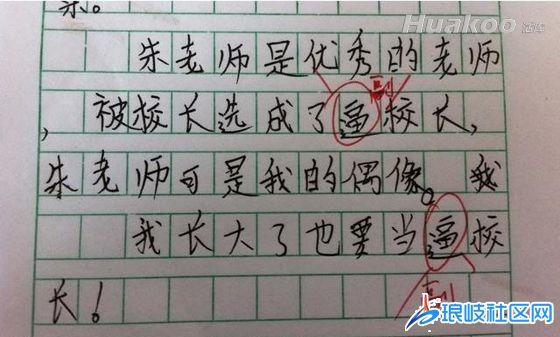 亲。
Huakoo 话库
朱老师是优秀的老师
副
，被校长选成了逼校长，
朱老师可是我的偶像。我
我长大了也要当逼校
副
长！
琅岐社区网